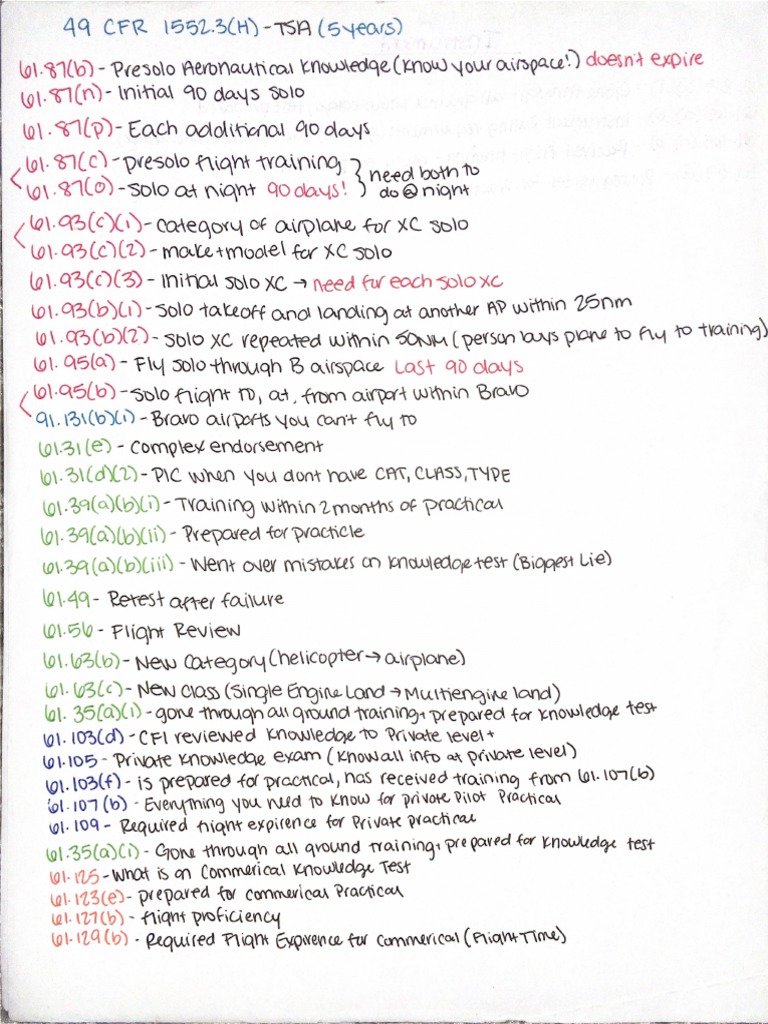 49 CFR 1552.3(H) - TSA (5 years)
61.87(b) - Presolo Aeronautical Knowledge (know your airspace!) doesn't expire
61.87(n) - Initial 90 days solo
61.87(p) - Each additional 90 days
61.87(c) - presolo flight training } need both to
61.87(o) - solo at night 90 days! } do @ night
61.93(c)(1) - category of airplane for XC solo
61.93(c)(2) - make + model for XC solo
61.93(c)(3) - Initial solo XC → need for each solo xc
61.93(b)(1) - Solo takeoff and landing at another AP within 25nm
61.93(b)(2) - Solo XC repeated within 50NM (person buys plane to fly to training)
61.95(a) - Fly solo through B airspace Last 90 days
61.95(b) - Solo flight to, at, from airport within Bravo
91.131(b)(1) - Bravo airports you can't fly to
61.31(e) - Complex endorsement
61.31(d)(2) - PIC when you dont have CAT, CLASS, TYPE
61.39(a)(b)(i) - Training within 2 months of practical
61.39(a)(b)(ii) - Prepared for practicle
61.39(a)(b)(iii) - Went over mistakes on knowledge test (Biggest Lie)
61.49 - Retest after failure
61.56 - Flight Review
61.63(b) - New Category (helicopter → airplane)
61.63(c) - New Class (Single Engine Land → Multiengine land)
61.35(a)(1) - gone through all ground training + prepared for knowledge test
61.103(d) - CFI reviewed knowledge to Private level +
61.105 - Private knowledge exam (Know all info at private level)
61.103(f) - is prepared for practical, has received training from 61.107(b)
61.107(b) - Everything you need to know for private Pilot Practical
61.109 - Required flight expirence for Private practical
61.35(a)(1) - Gone through all ground training + prepared for knowledge test
61.125 - What is on Commerical Knowledge Test
61.123(e) - prepared for commerical Practical
61.127(b) - flight proficiency
61.129(b) - Required Flight Expirence for commerical (Flight Time)